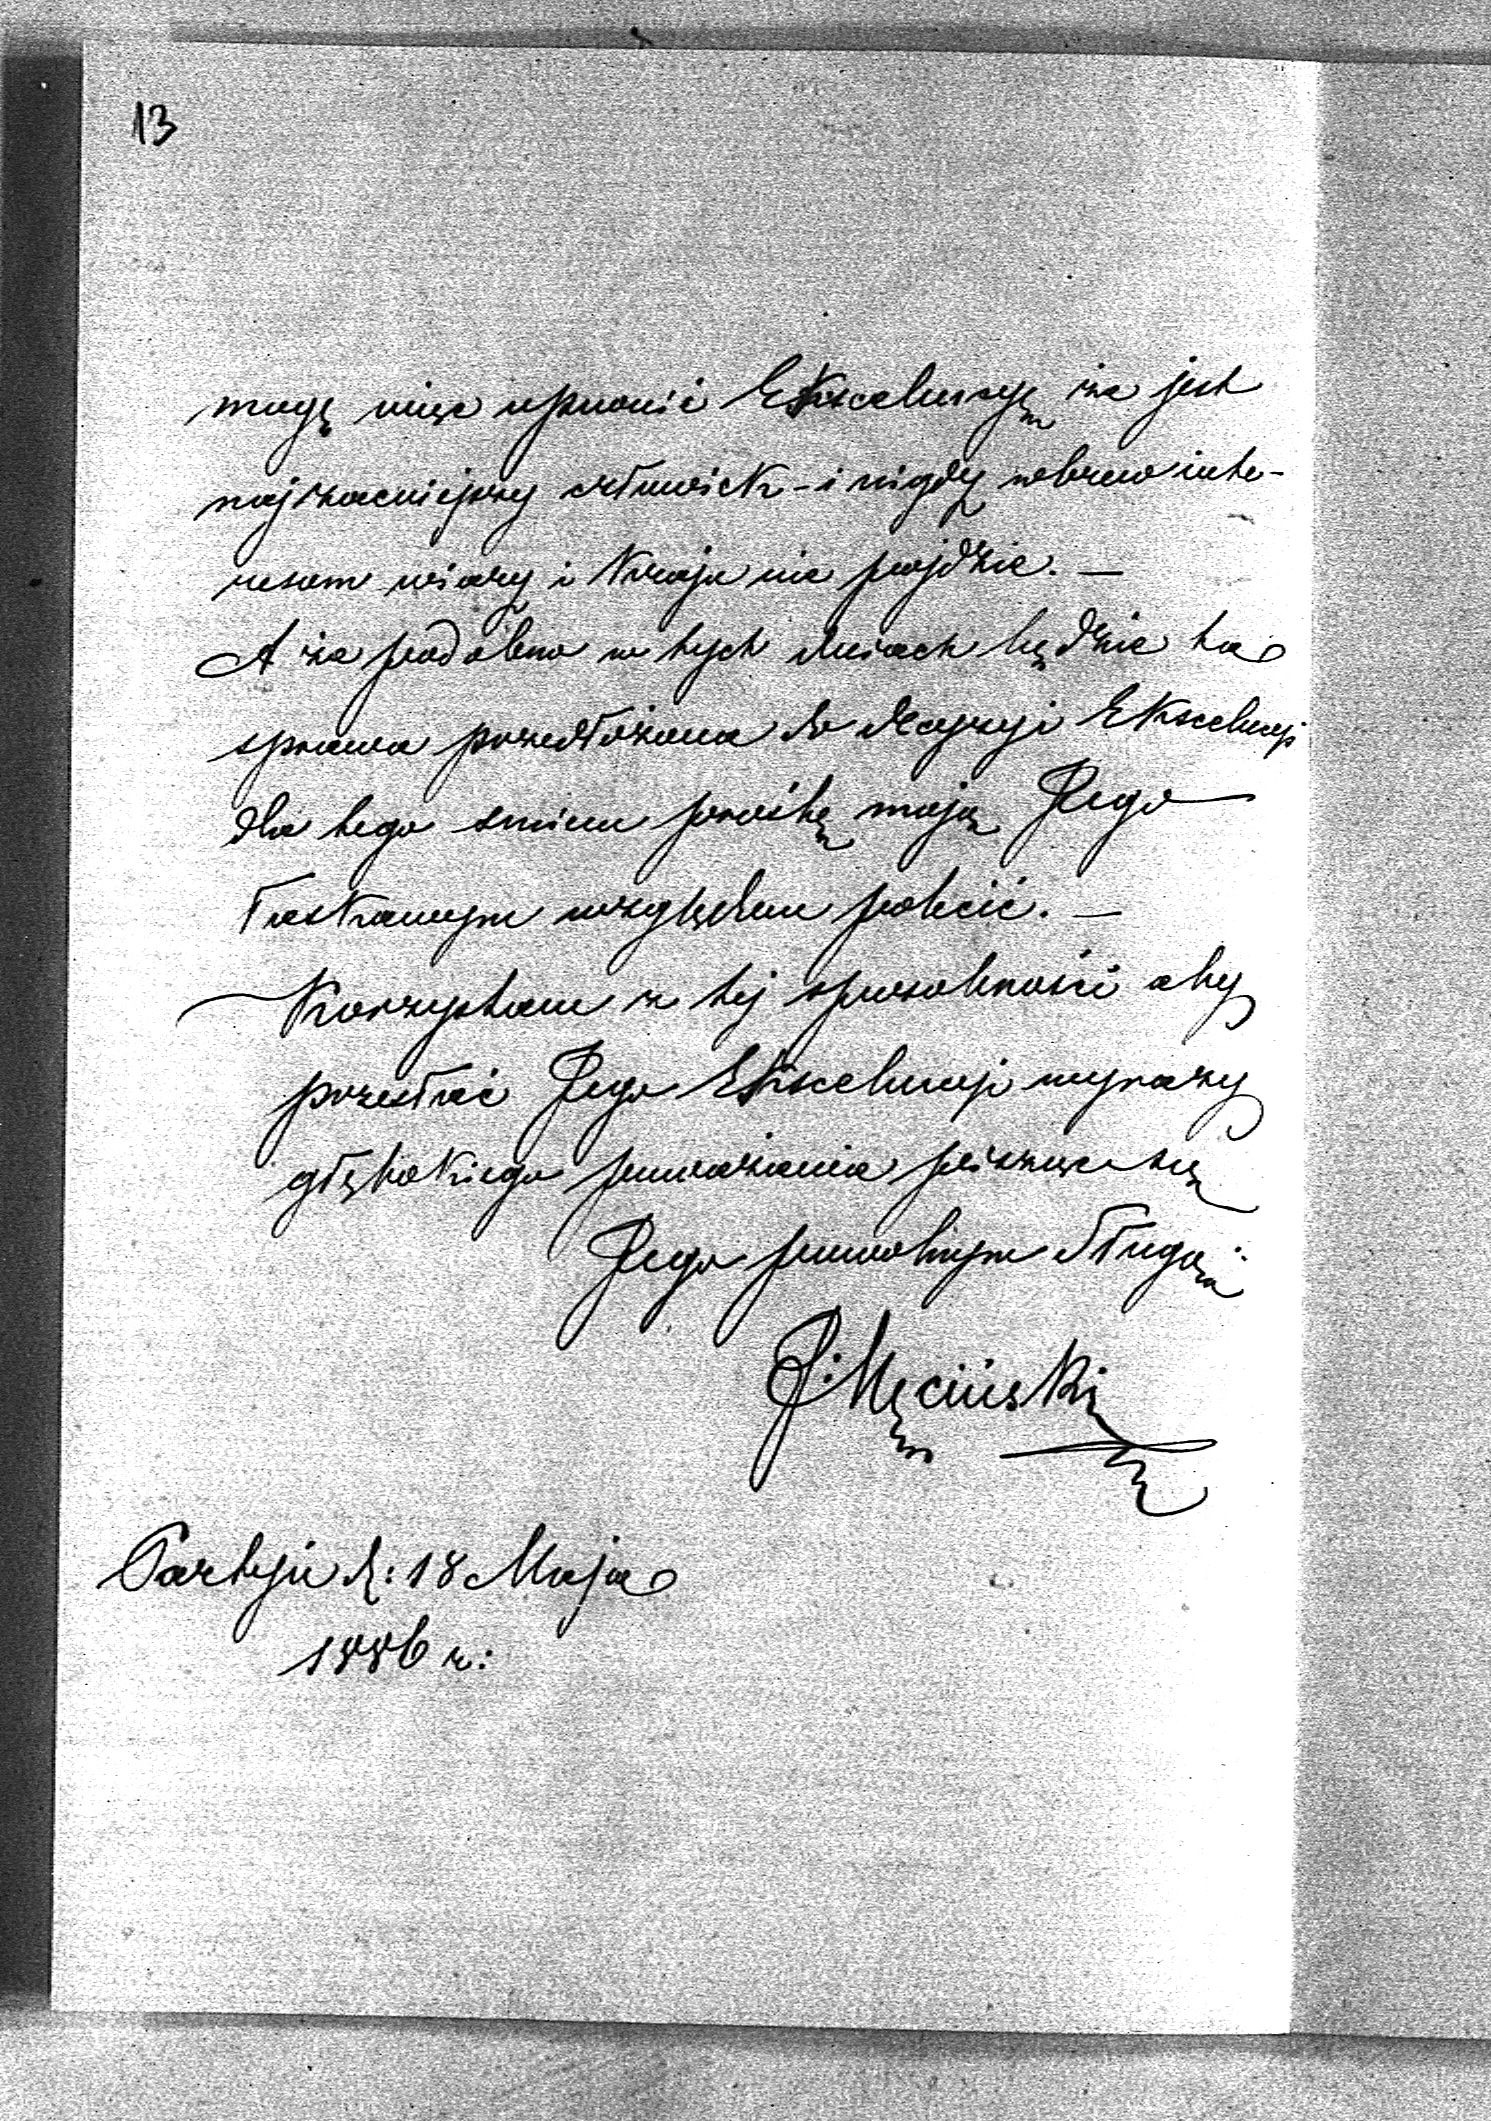 13
mogę więc upewnić Ekscelencyę że jest
najzacniejszy człowiek - i nigdy wbrew inte-
resom wiary i Kraju nie pojdzie. —
A że podobno w tych dniach będzie ta
sprawa przedłożona do decyzyi Ekscelencji
dla tego smiem prośbę moją Jego
łaskawym względom polecić. —
Korzystam z tej sposobności aby
przesłać Jego Ekscelencji wyrazy
głębokiego poważania pisząc się
Jego powolnym Sługą:
J: Męciński
Partyń d: 18 Maja
1886 r: